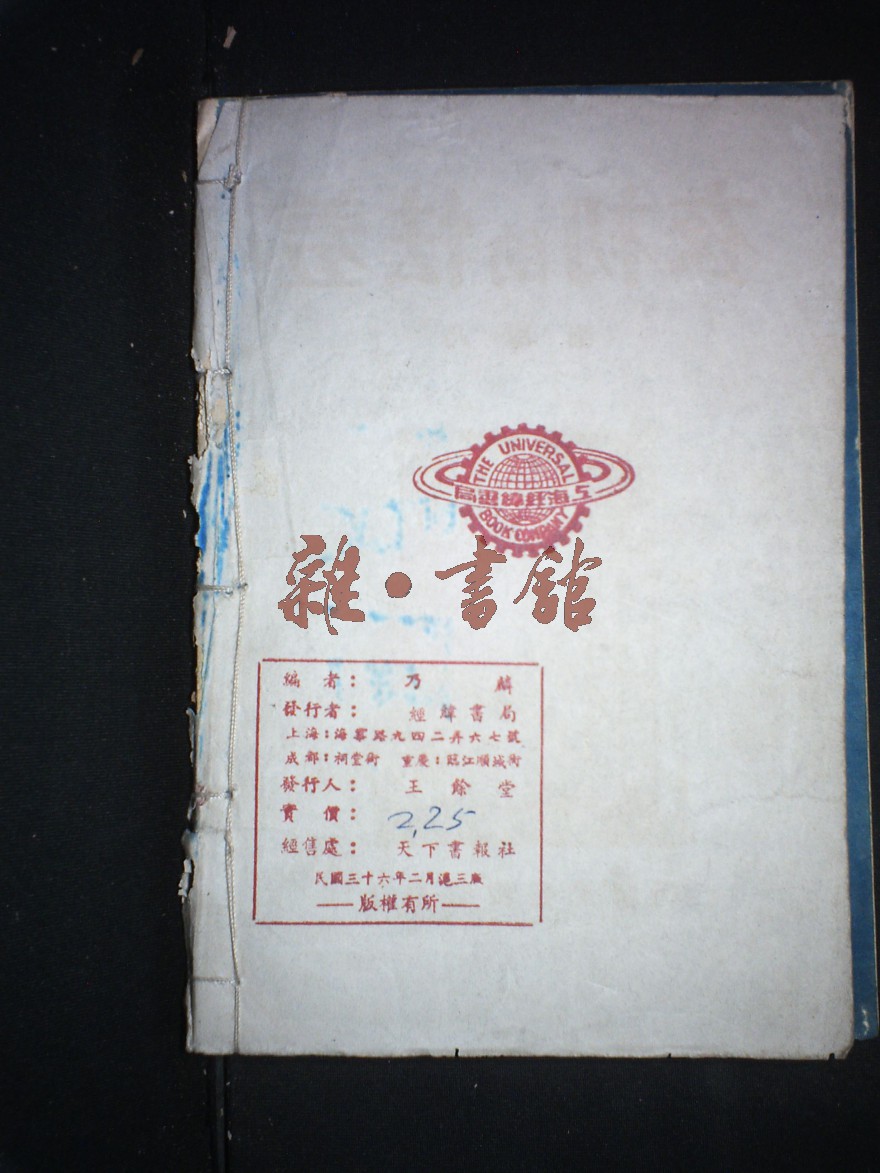 THE UNIVERSAL
上海經緯書局
BOOK COMPANY
雜·書館
編者：乃麟
發行者：經緯書局
上海：海寧路九四二弄六七號
成都：祠堂街 重慶：臨江順城街
發行人：王餘堂
實價：2.25
經售處：天下書報社
民國三十六年二月滬三版
版權有所